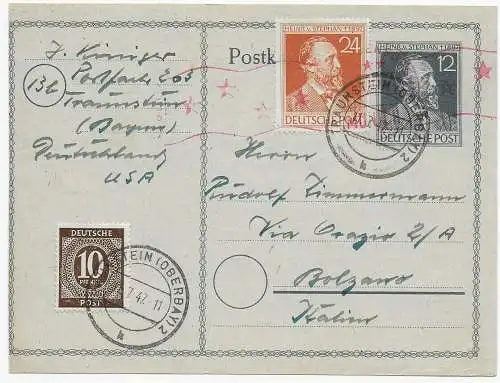 J. Kiniger
Postfach 203
(13b)
Traunstein
(Bayern)
Deutschland
USA
Postk
HEINR. v. STEPHAN † 1897
24
DEUTSCHE POST
HEINR. v. STEPHAN † 1897
12
DEUTSCHE POST
TRAUNSTEIN (OBERBAY) 2
k
Herrn
Rudolf Zimmermann
Via Orazio 2/A
Bolzano
Italien
DEUTSCHE
10
PFENNIG
POST
STEIN (OBERBAY) 2
7 47. 11
k